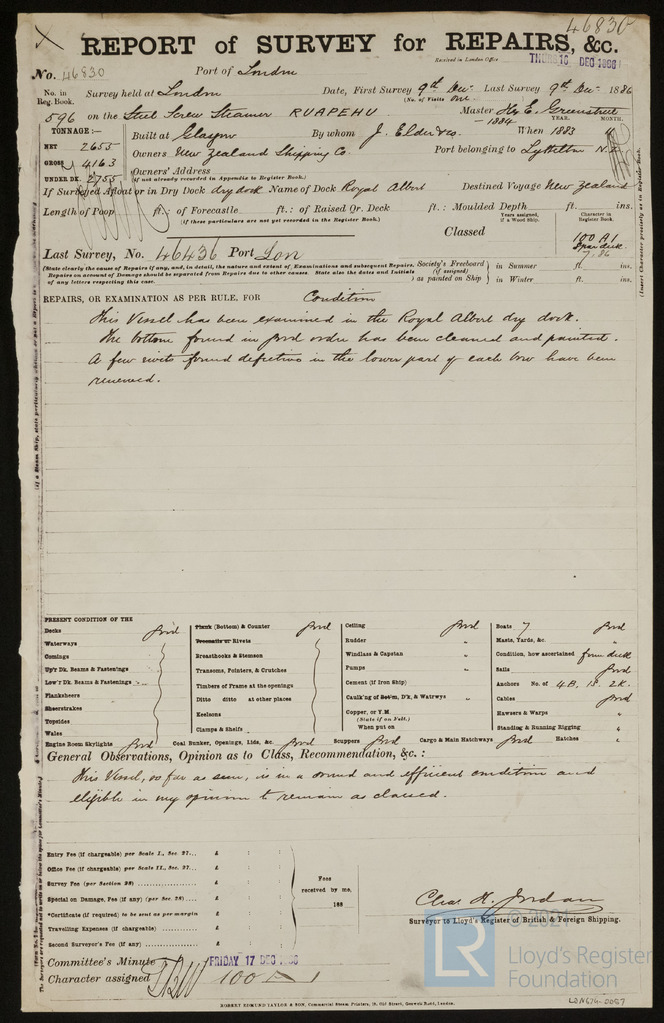 46830
REPORT of SURVEY for REPAIRS, &c.
Received in London Office THURS 16 DEC 1886
No. 46830 Port of London
No. in Reg. Book. Survey held at London Date, First Survey 9th Dec Last Survey 9th Dec 1886
(No. of Visits One.)
596 on the Steel Screw Steamer RUAPEHU Master Hy E. Greenstreet
1884 YEAR. MONTH.
TONNAGE:— Built at Glasgow By whom J. Elder & Co. When 1883
NET 2655
GROSS 4163 Owners New Zealand Shipping Co. Port belonging to Lyttelton N.Z
Owners' Address
UNDER DK. 2755 (If not already recorded in Appendix to Register Book.)
If Surveyed Afloat or in Dry Dock dry dock Name of Dock Royal Albert Destined Voyage New Zealand
Length of Poop ft.: of Forecastle ft.: of Raised Qr. Deck ft.: Moulded Depth ft. ins.
(If these particulars are not yet recorded in the Register Book.) Years assigned, if a Wood Ship. Character in Register Book.
Classed 100 A1
Spar deck
7.86
Last Survey, No. 46436 Port Lon
(State clearly the cause of Repairs if any, and, in detail, the nature and extent of Examinations and subsequent Repairs. Society's Freeboard in Summer ft. ins.
Repairs on account of Damage should be separated from Repairs due to other causes. State also the dates and initials (if assigned)
of any letters respecting this case. as painted on Ship in Winter ft. ins.
REPAIRS, OR EXAMINATION AS PER RULE, FOR Condition
This Vessel has been examined in the Royal Albert dry dock.
The bottom found in good order has been cleaned and painted.
A few rivets found defective in the lower part of each bow have been
renewed.
PRESENT CONDITION OF THE
Decks good
Waterways
Comings
Up'r Dk. Beams & Fastenings
Low'r Dk. Beams & Fastenings
Planksheers
Sheerstrakes
Topsides
Wales
Plank (Bottom) & Counter good
Treenails or Rivets
Breasthooks & Stemson
Transoms, Pointers, & Crutches
Timbers of Frame at the openings
Ditto ditto at other places
Keelsons
Clamps & Shelfs
Ceiling good
Rudder "
Windlass & Capstan "
Pumps "
Cement (if Iron Ship)
Caulk'ng of Bott'm, D'k, & Watrwys "
Copper, or Y.M.
(State if on Felt.)
When put on
Boats 7 good
Masts, Yards, &c. "
Condition, how ascertained from deck
Sails good
Anchors No. of 4B, 1S. 2K.
Cables good
Hawsers & Warps "
Standing & Running Rigging "
Engine Room Skylights good Coal Bunker, Openings, Lids, &c. good Scuppers good Cargo & Main Hatchways good Hatches "
General Observations, Opinion as to Class, Recommendation, &c.:
This Vessel, so far as seen, is in a sound and efficient condition and
eligible in my opinion to remain as classed.
Entry Fee (if chargeable) per Scale I., Sec. 27... £ : :
Office Fee (if chargeable) per Scale II., Sec. 27... £ : :
Survey Fee (per Section 28) £ : :
Special on Damage, Fee (if any) (per Sec. 28) £ : :
*Certificate (if required) to be sent as per margin
Travelling Expenses (if chargeable) £ : :
Second Surveyor's Fee (if any) £ : :
Fees received by me, 188
Chas H. Jordan
Surveyor to Lloyd's Register of British & Foreign Shipping.
Committee's Minute FRIDAY 17 DEC 1886
Character assigned 100 A 1
ROBERT EDMUND TAYLOR & SON, Commercial Steam Printers, 19, Old Street, Goswell Road, London.
© 2021
LR
Lloyd's Register
Foundation
LDN674-0087